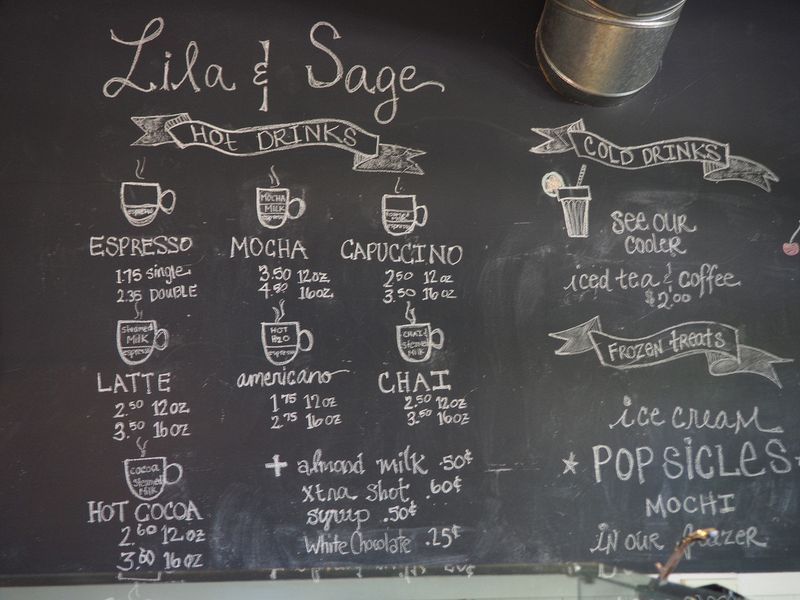 Lila & Sage
HOT DRINKS
espresso
ESPRESSO
1.75 single
2.35 DOUBLE
MOCHA
MILK
espresso
MOCHA
3.50 12oz
4.50 16oz
steamed
MILK
espresso
CAPUCCINO
2.50 12oz
3.50 16oz
Steamed
MILK
espresso
LATTE
2.50 12oz
3.50 16oz
HOT
H2O
espresso
americano
1.75 12oz
2.75 16oz
CHAI &
Steamed
MILK
CHAI
2.50 12oz
3.50 16oz
cocoa
Steamed
MILK
HOT COCOA
2.60 12oz
3.60 16oz
+ almond milk .50¢
xtra shot .60¢
syrup .50¢
white Chocolate .25¢
COLD DRINKS
see our
cooler
iced tea & coffee
$2.00
Frozen treats
ice cream
POPSICLES
MOCHI
in our frazer